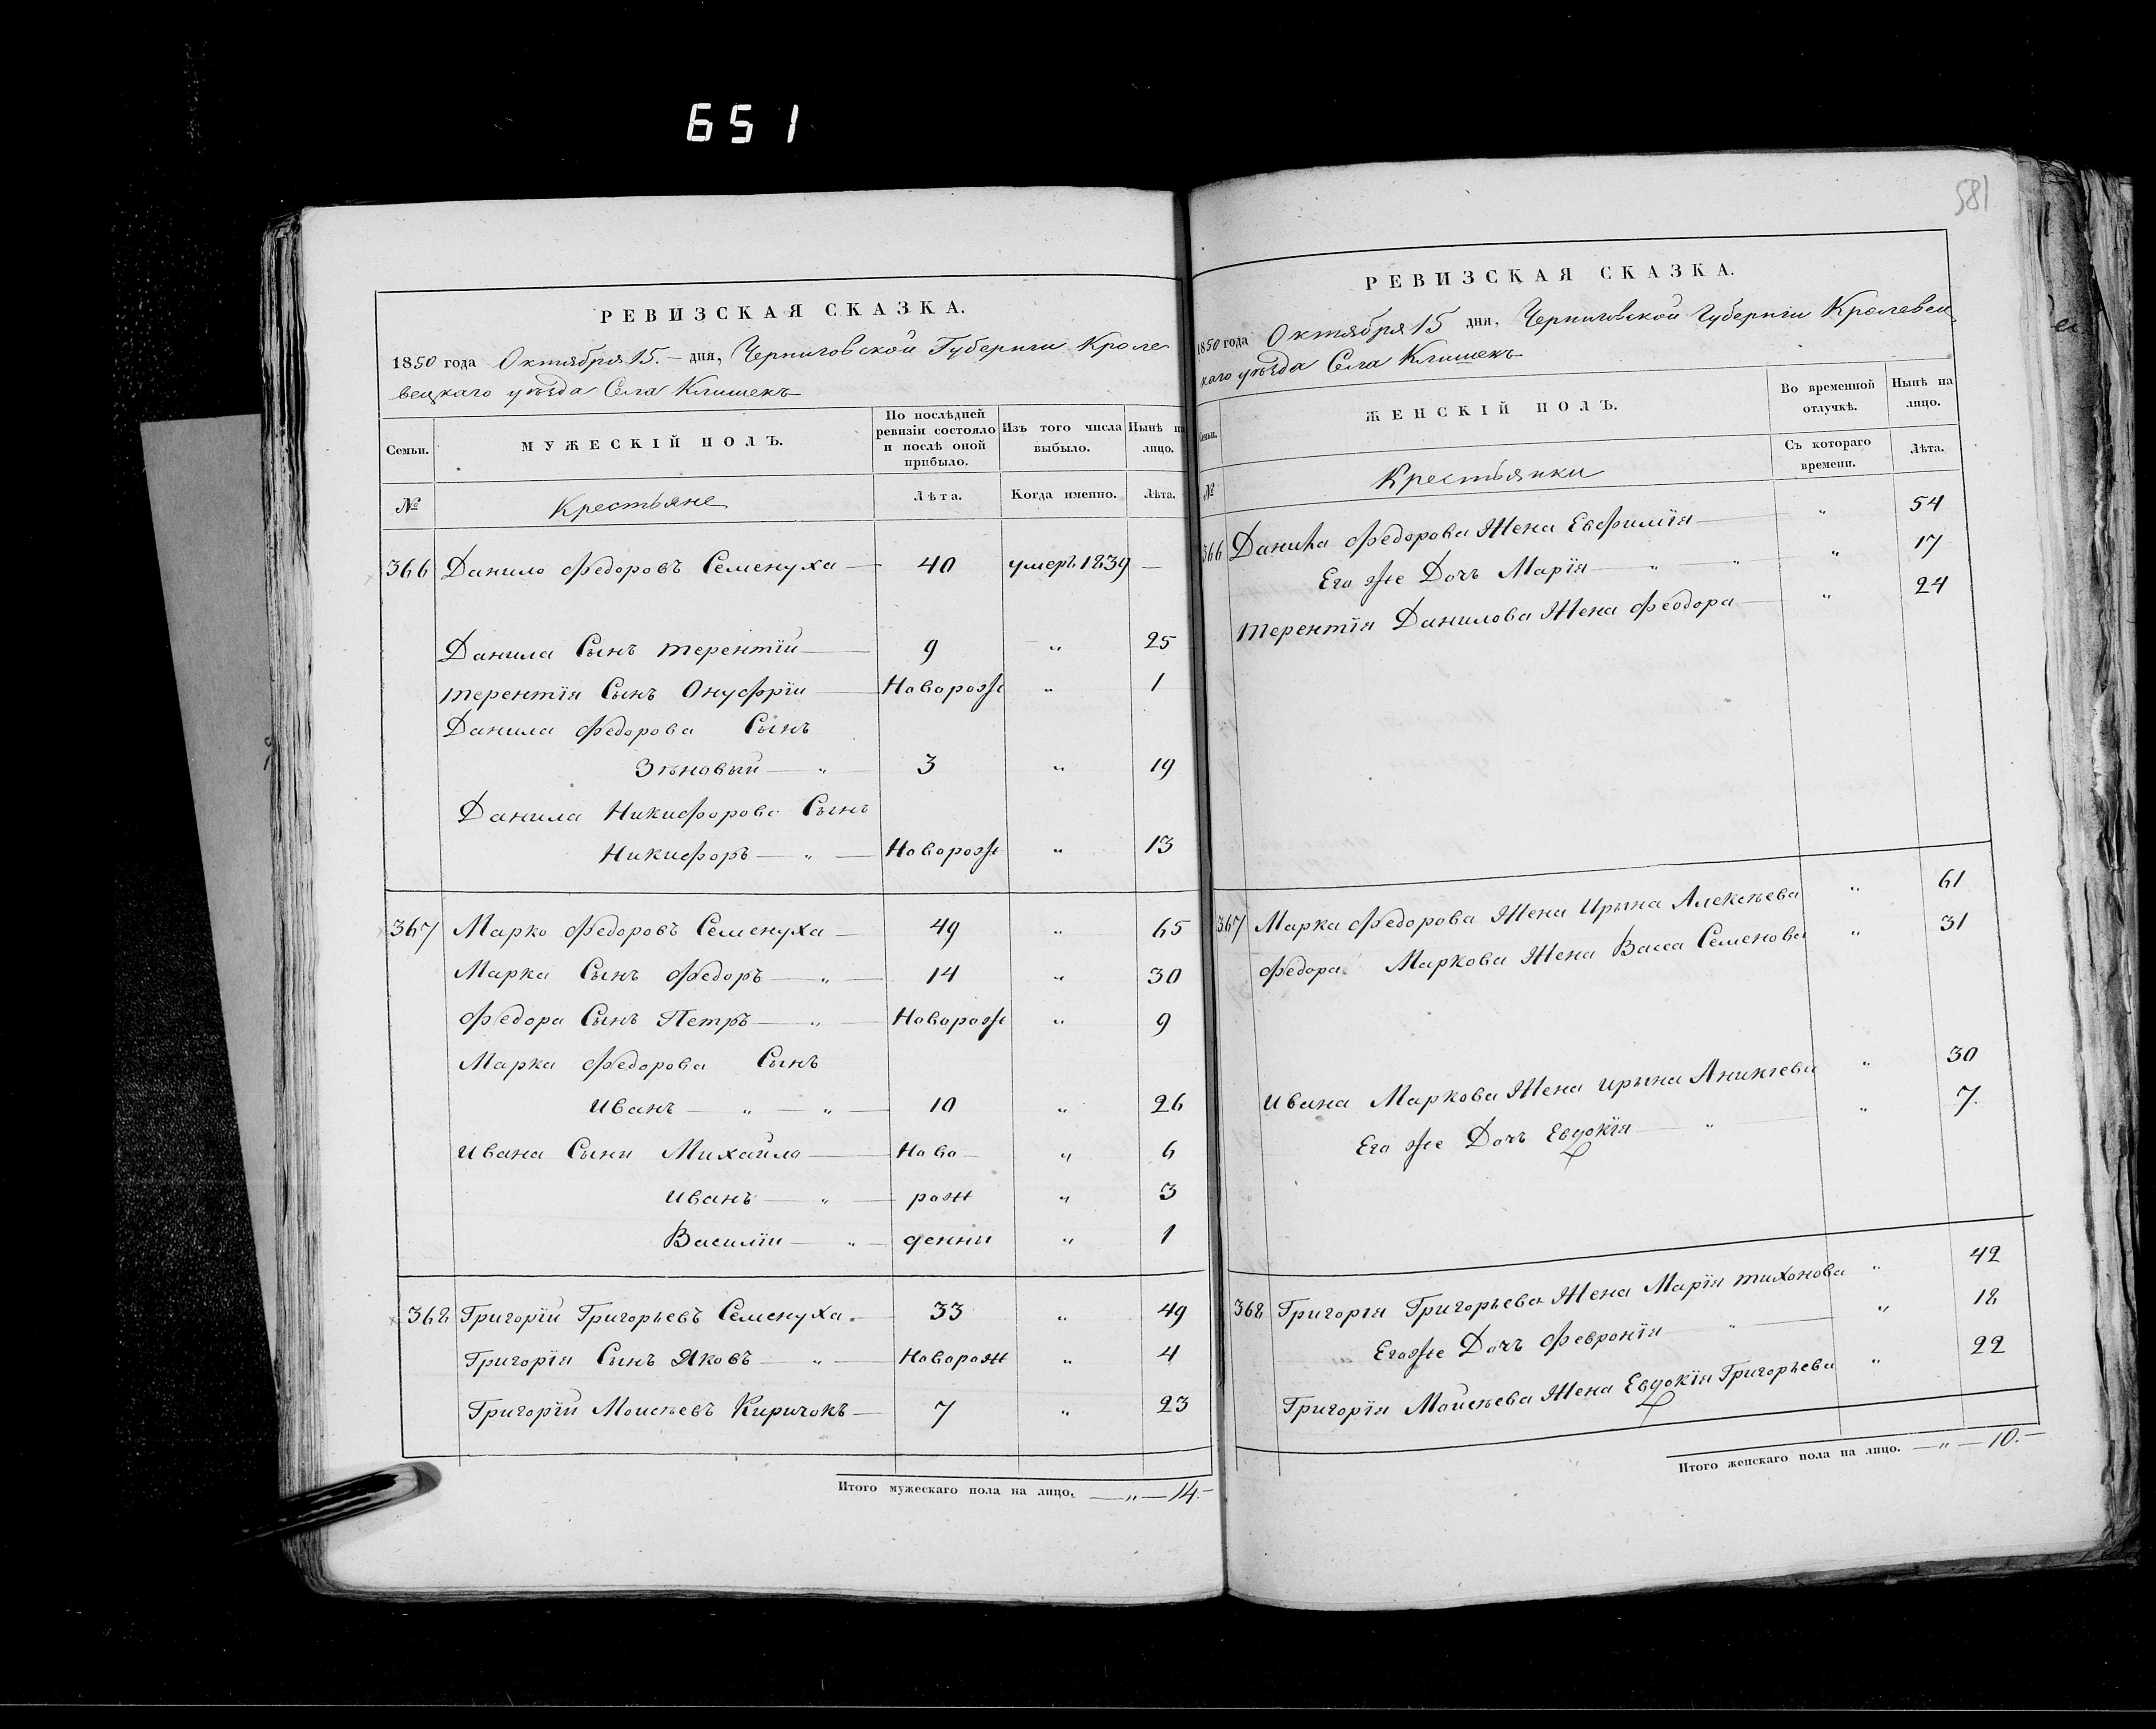 651
РЕВИЗСКАЯ СКАЗКА.
1850 года Октября 15. — дня, Черниговской Губерніи Кроле
вецкаго уѣзда Села Клишекъ
Семьи. МУЖЕСКІЙ ПОЛЪ. По послѣдней ревизіи состояло и послѣ оной прибыло. Изъ того числа выбыло. Нынѣ на лицо.
№ Крестьяне Лѣта. Когда именно. Лѣта.
366 Данило Федоровъ Семенуха — 40 умеръ 1839 —
Данила Сынъ Терентій — 9 „ 25
Терентія Сынъ Онуфрій — Новорож „ 1
Данила Федорова Сынъ
Зѣновый — „ 3 „ 19
Данила Никифорова Сынъ
Никифоръ — „ — Новорож „ 13
367 Марко Федоровъ Семенуха — 49 „ 65
Марка Сынъ Федоръ — „ — 14 „ 30
Федора Сынъ Петръ — „ — Новорож „ 9
Марка Федорова Сынъ
Иванъ — „ — „ — 10 „ 26
Ивана Сыни Михайло — Ново — „ 6
Иванъ — „ — рож „ 3
Василій — „ — денни „ 1
368 Григорій Григорьевъ Семенуха. — 33 „ 49
Григорія Сынъ Яковъ — „ — Новорож „ 4
Григорій Моисѣевъ Киричокъ — 7 „ 23
Итого мужескаго пола на лицо. — „ — 14. —
581
РЕВИЗСКАЯ СКАЗКА.
1850 года Октября 15 дня, Черниговской Губерніи Кролевец
каго уѣзда Села Клишекъ
Семьи. ЖЕНСКІЙ ПОЛЪ. Во временной отлучкѣ. Нынѣ на лицо.
№ Крестьянки Съ котораго времени. Лѣта.
366 Данила Федорова Жена Евфимія — „ 54
Его же Дочъ Марія — „ — „ „ 17
Терентія Данилова Жена Феодора — „ 24
367 Марка Федорова Жена Ирына Алексѣева „ 61
Федора Маркова Жена Васса Семенова „ 31
Ивана Маркова Жена Ирына Аникіева „ 30
Его же Дочъ Евдокія — „ „ 7.
368 Григорія Григорьева Жена Марія Тихонова „ 42
Его же Дочъ Февронія — „ — „ 18
Григорія Моисѣева Жена Евдокія Григорьева „ 22
Итого женскаго пола на лицо. — „ — 10. —